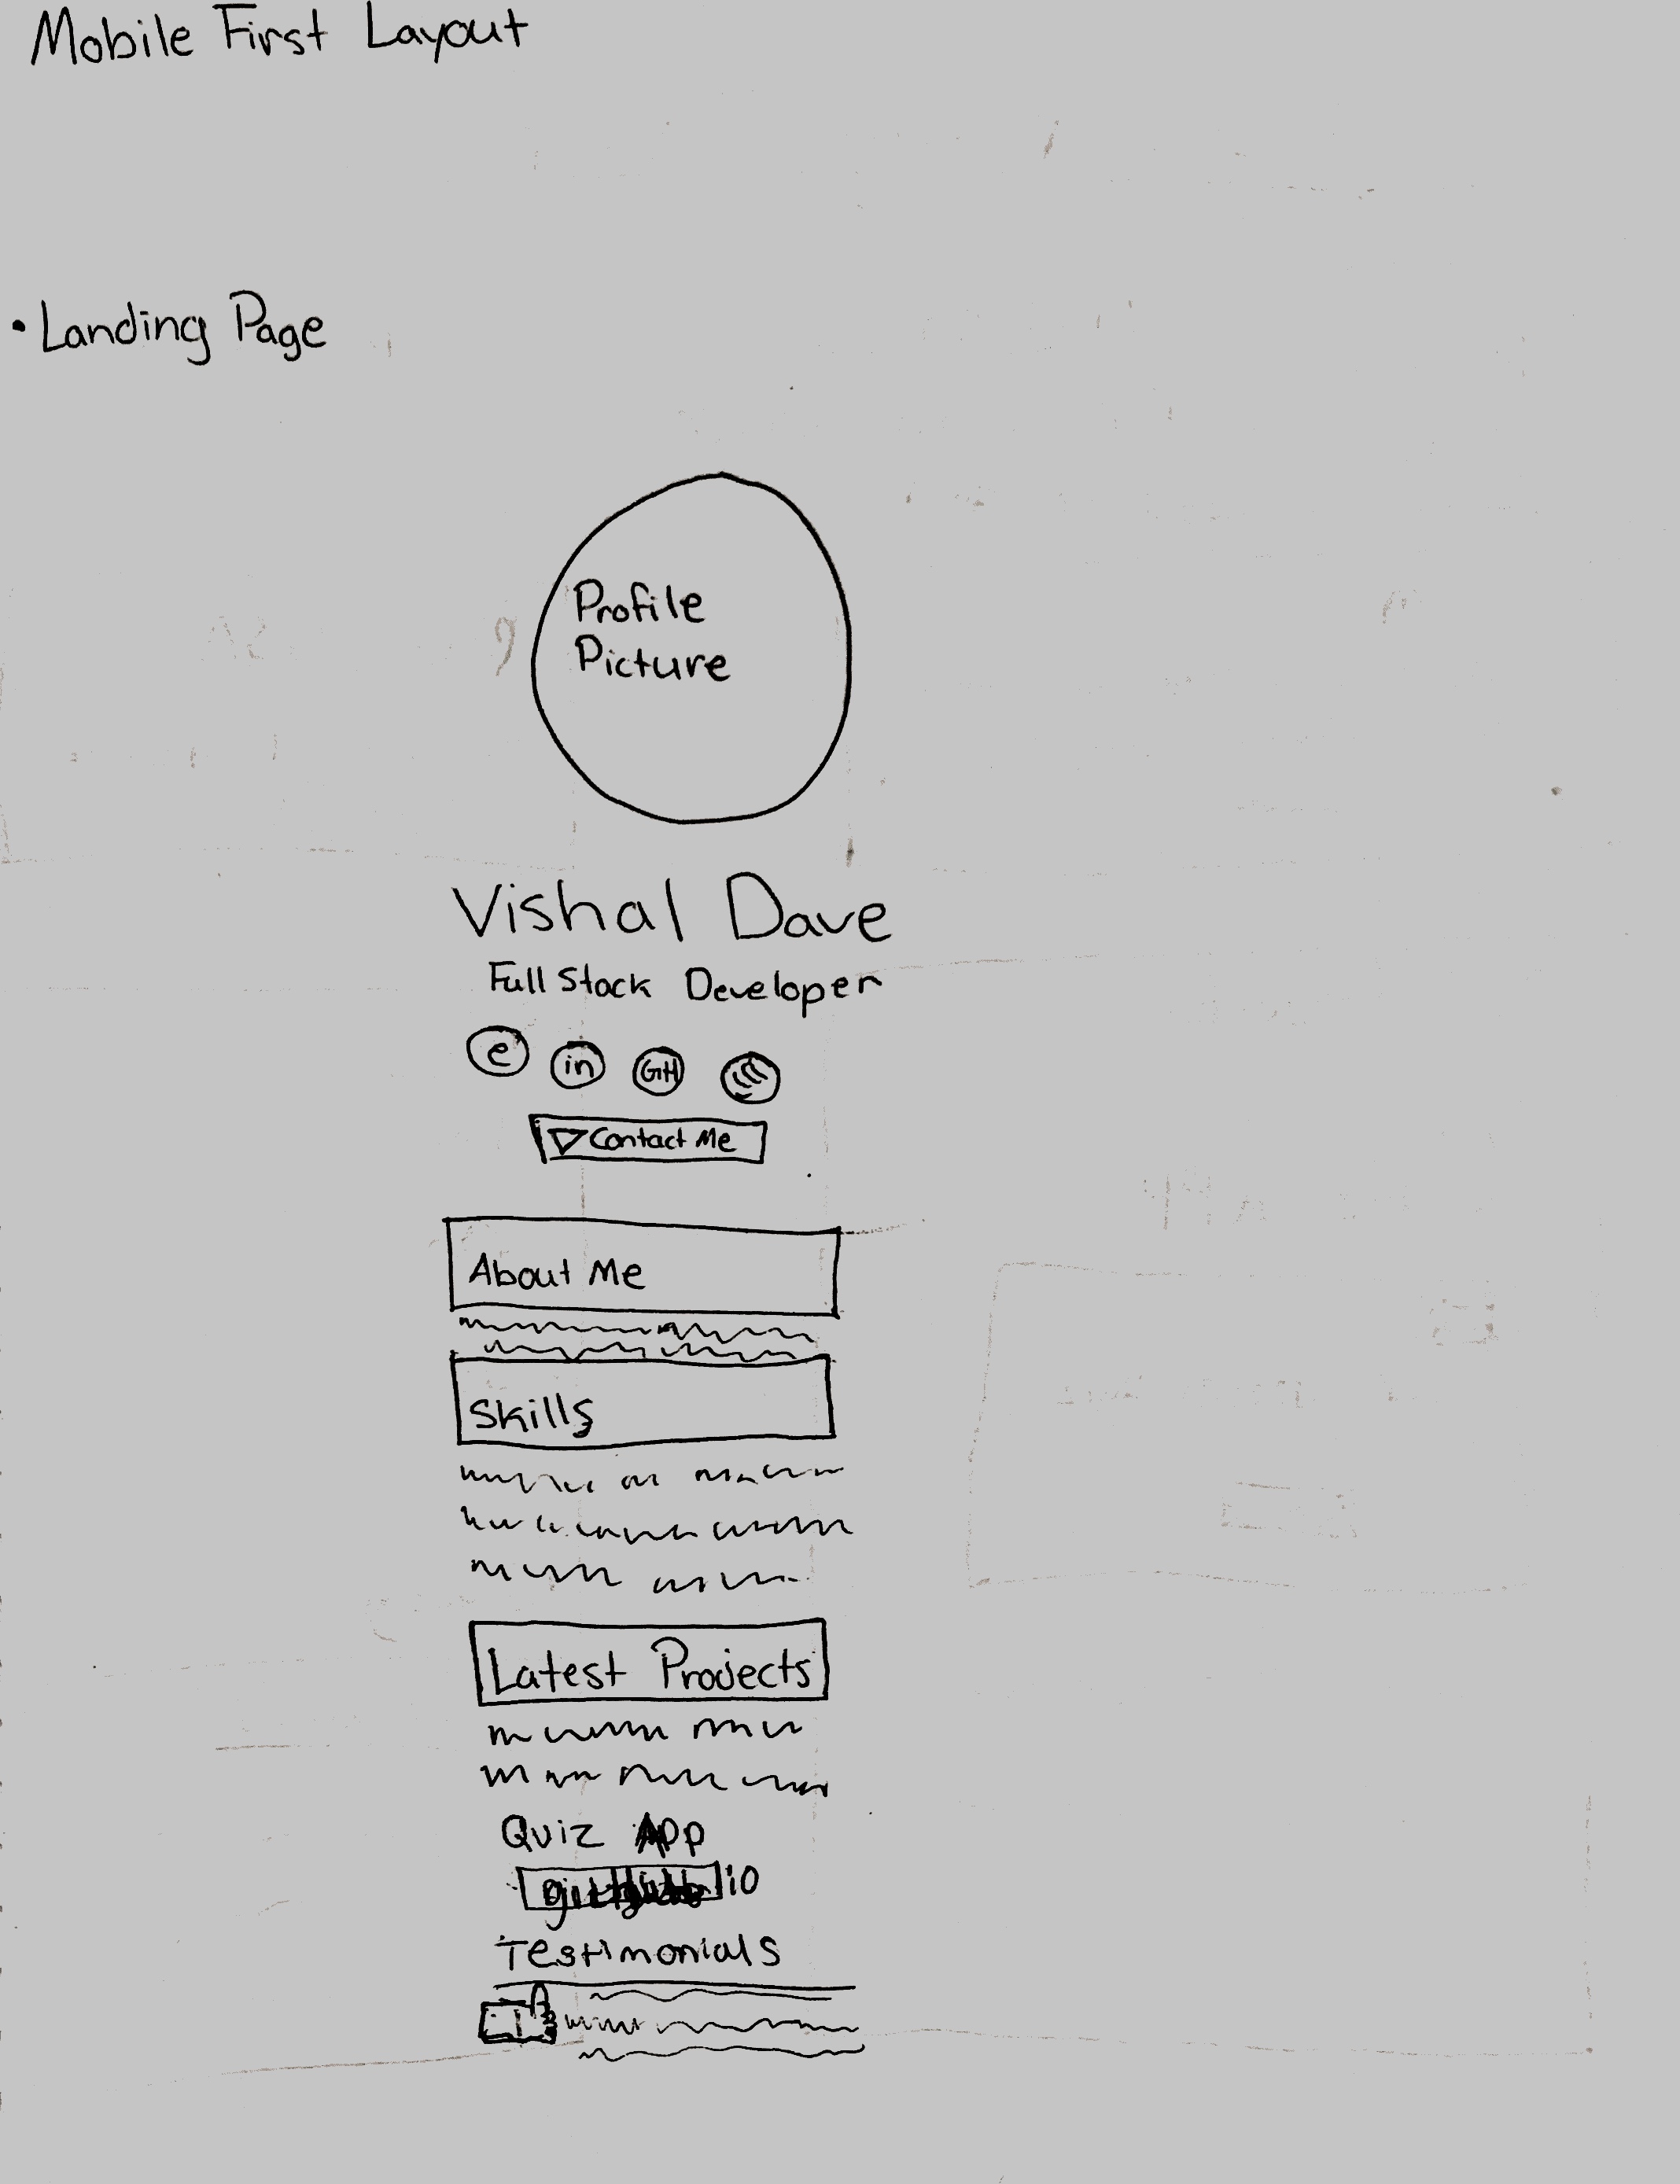 Mobile First Layout
• Landing Page
Profile
Picture
Vishal Dave
Full Stack Developer
e in GH
Contact Me
About Me
Skills
Latest Projects
Quiz App
io
Testimonials